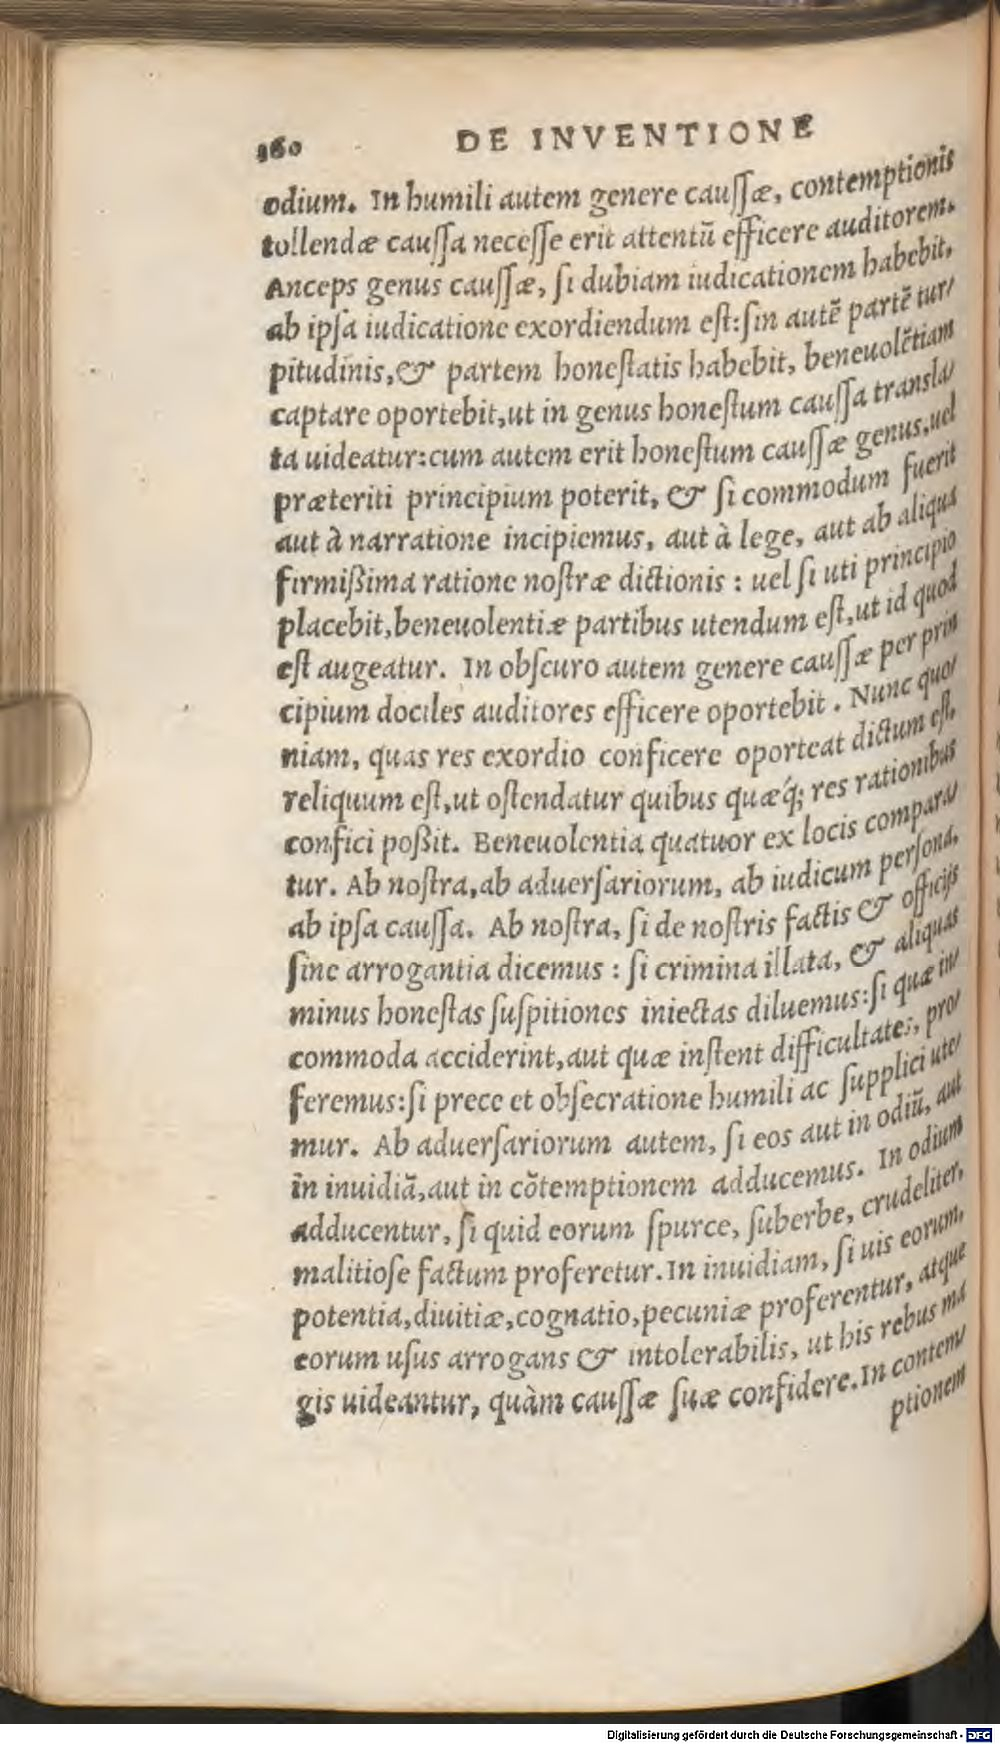 160 DE INVENTIONE
odium. In humili autem genere cauſſæ, contemptionis
tollendæ cauſſa neceſſe erit attentū efficere auditorem.
Anceps genus cauſſæ, ſi dubiam iudicationem habebit,
ab ipſa iudicatione exordiendum eſt: ſin autē partē tur/
pitudinis, & partem honeſtatis habebit, beneuolētiam
captare oportebit, ut in genus honeſtum cauſſa transla/
ta uideatur: cum autem erit honeſtum cauſſæ genus, uel
præteriti principium poterit, & ſi commodum fuerit
aut à narratione incipiemus, aut à lege, aut ab aliqua
firmißima ratione noſtræ dictionis : uel ſi uti principio
placebit, beneuolentiæ partibus utendum eſt, ut id quod
eſt augeatur. In obſcuro autem genere cauſſæ per prin
cipium dociles auditores efficere oportebit. Nunc quo/
niam, quas res exordio conficere oporteat dictum eſt,
reliquum eſt, ut oſtendatur quibus quæq́; res rationibus
confici poßit. Beneuolentia quatuor ex locis compara/
tur. Ab noſtra, ab aduerſariorum, ab iudicum perſona,
ab ipſa cauſſa. Ab noſtra, ſi de noſtris factis & officijs
ſine arrogantia dicemus : ſi crimina illata, & aliquas
minus honeſtas ſuſpitiones iniectas diluemus: ſi quæ in/
commoda acciderint, aut quæ inſtent difficultates, pro/
feremus: ſi prece et obſecratione humili ac ſupplici ute/
mur. Ab aduerſariorum autem, ſi eos aut in odiū, aut
in inuidiā, aut in cōtemptionem adducemus. In odium
adducentur, ſi quid eorum ſpurce, ſuberbe, crudeliter,
malitioſe factum proferetur. In inuidiam, ſi uis eorum,
potentia, diuitiæ, cognatio, pecuniæ proferentur, atque
eorum uſus arrogans & intolerabilis, ut his rebus ma
gis uideantur, quàm cauſſæ ſuæ confidere. In contem/
ptionem
Digitalisierung gefördert durch die Deutsche Forschungsgemeinschaft - DFG